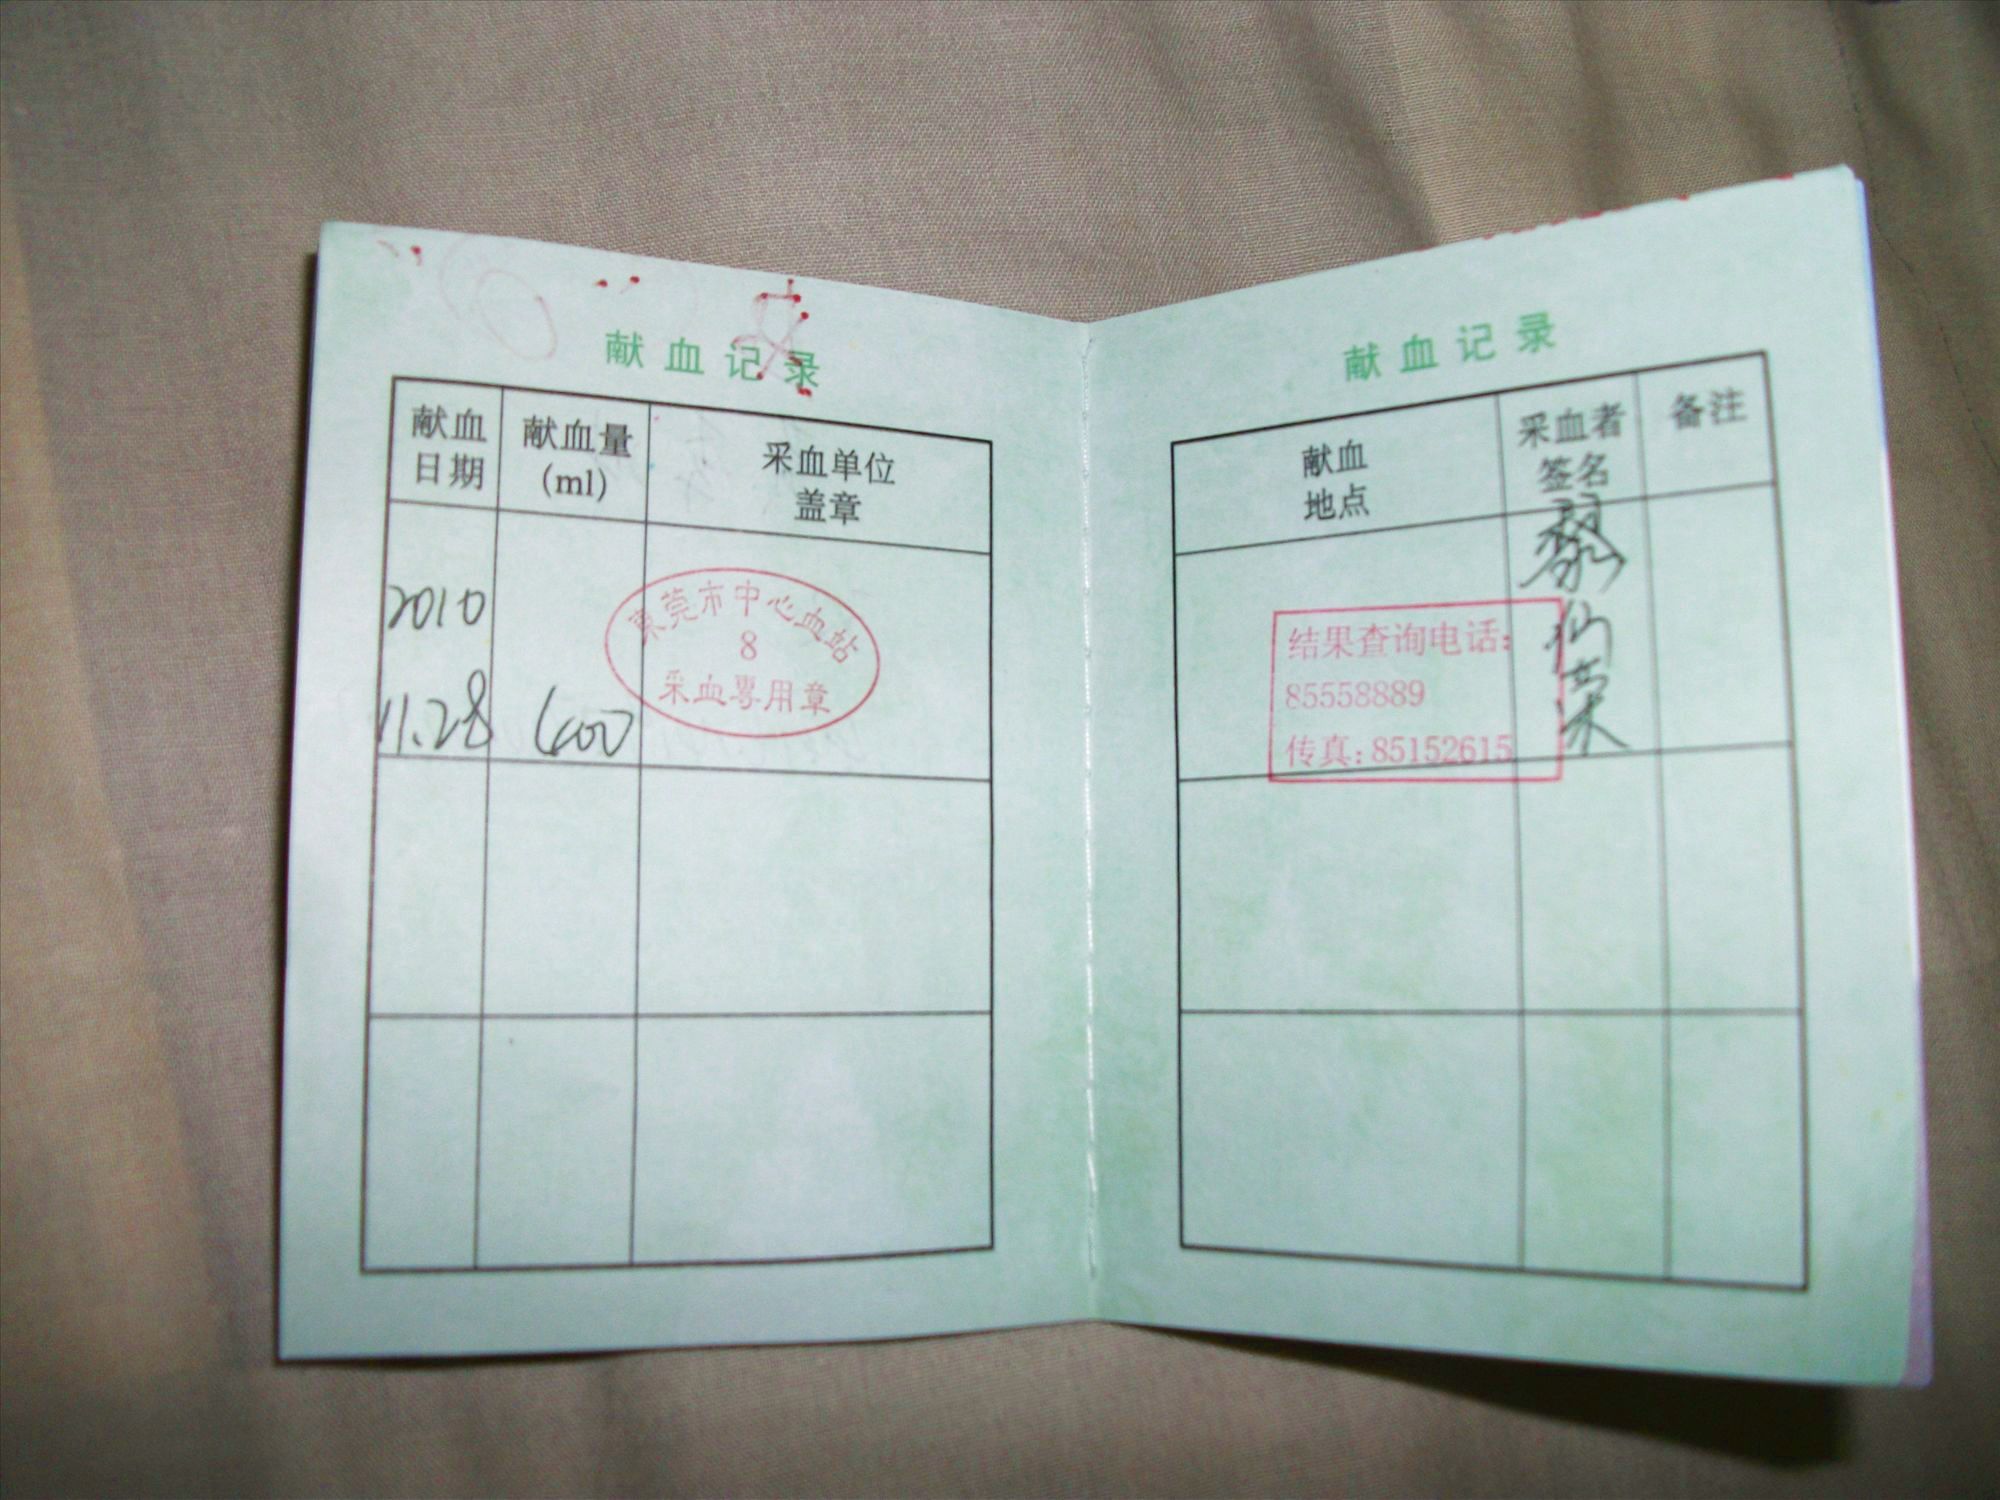 献血记录
献血
日期
献血量
(ml)
采血单位
盖章
2010
11.28
400
东莞市中心血站
8
采血专用章
献血记录
献血
地点
采血者
签名
备注
结果查询电话:
85558889
传真:85152615